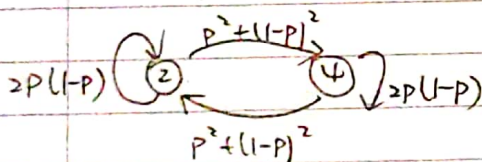 p²+(1-p)²
2p(1-p) 2 4 2p(1-p)
p²+(1-p)²